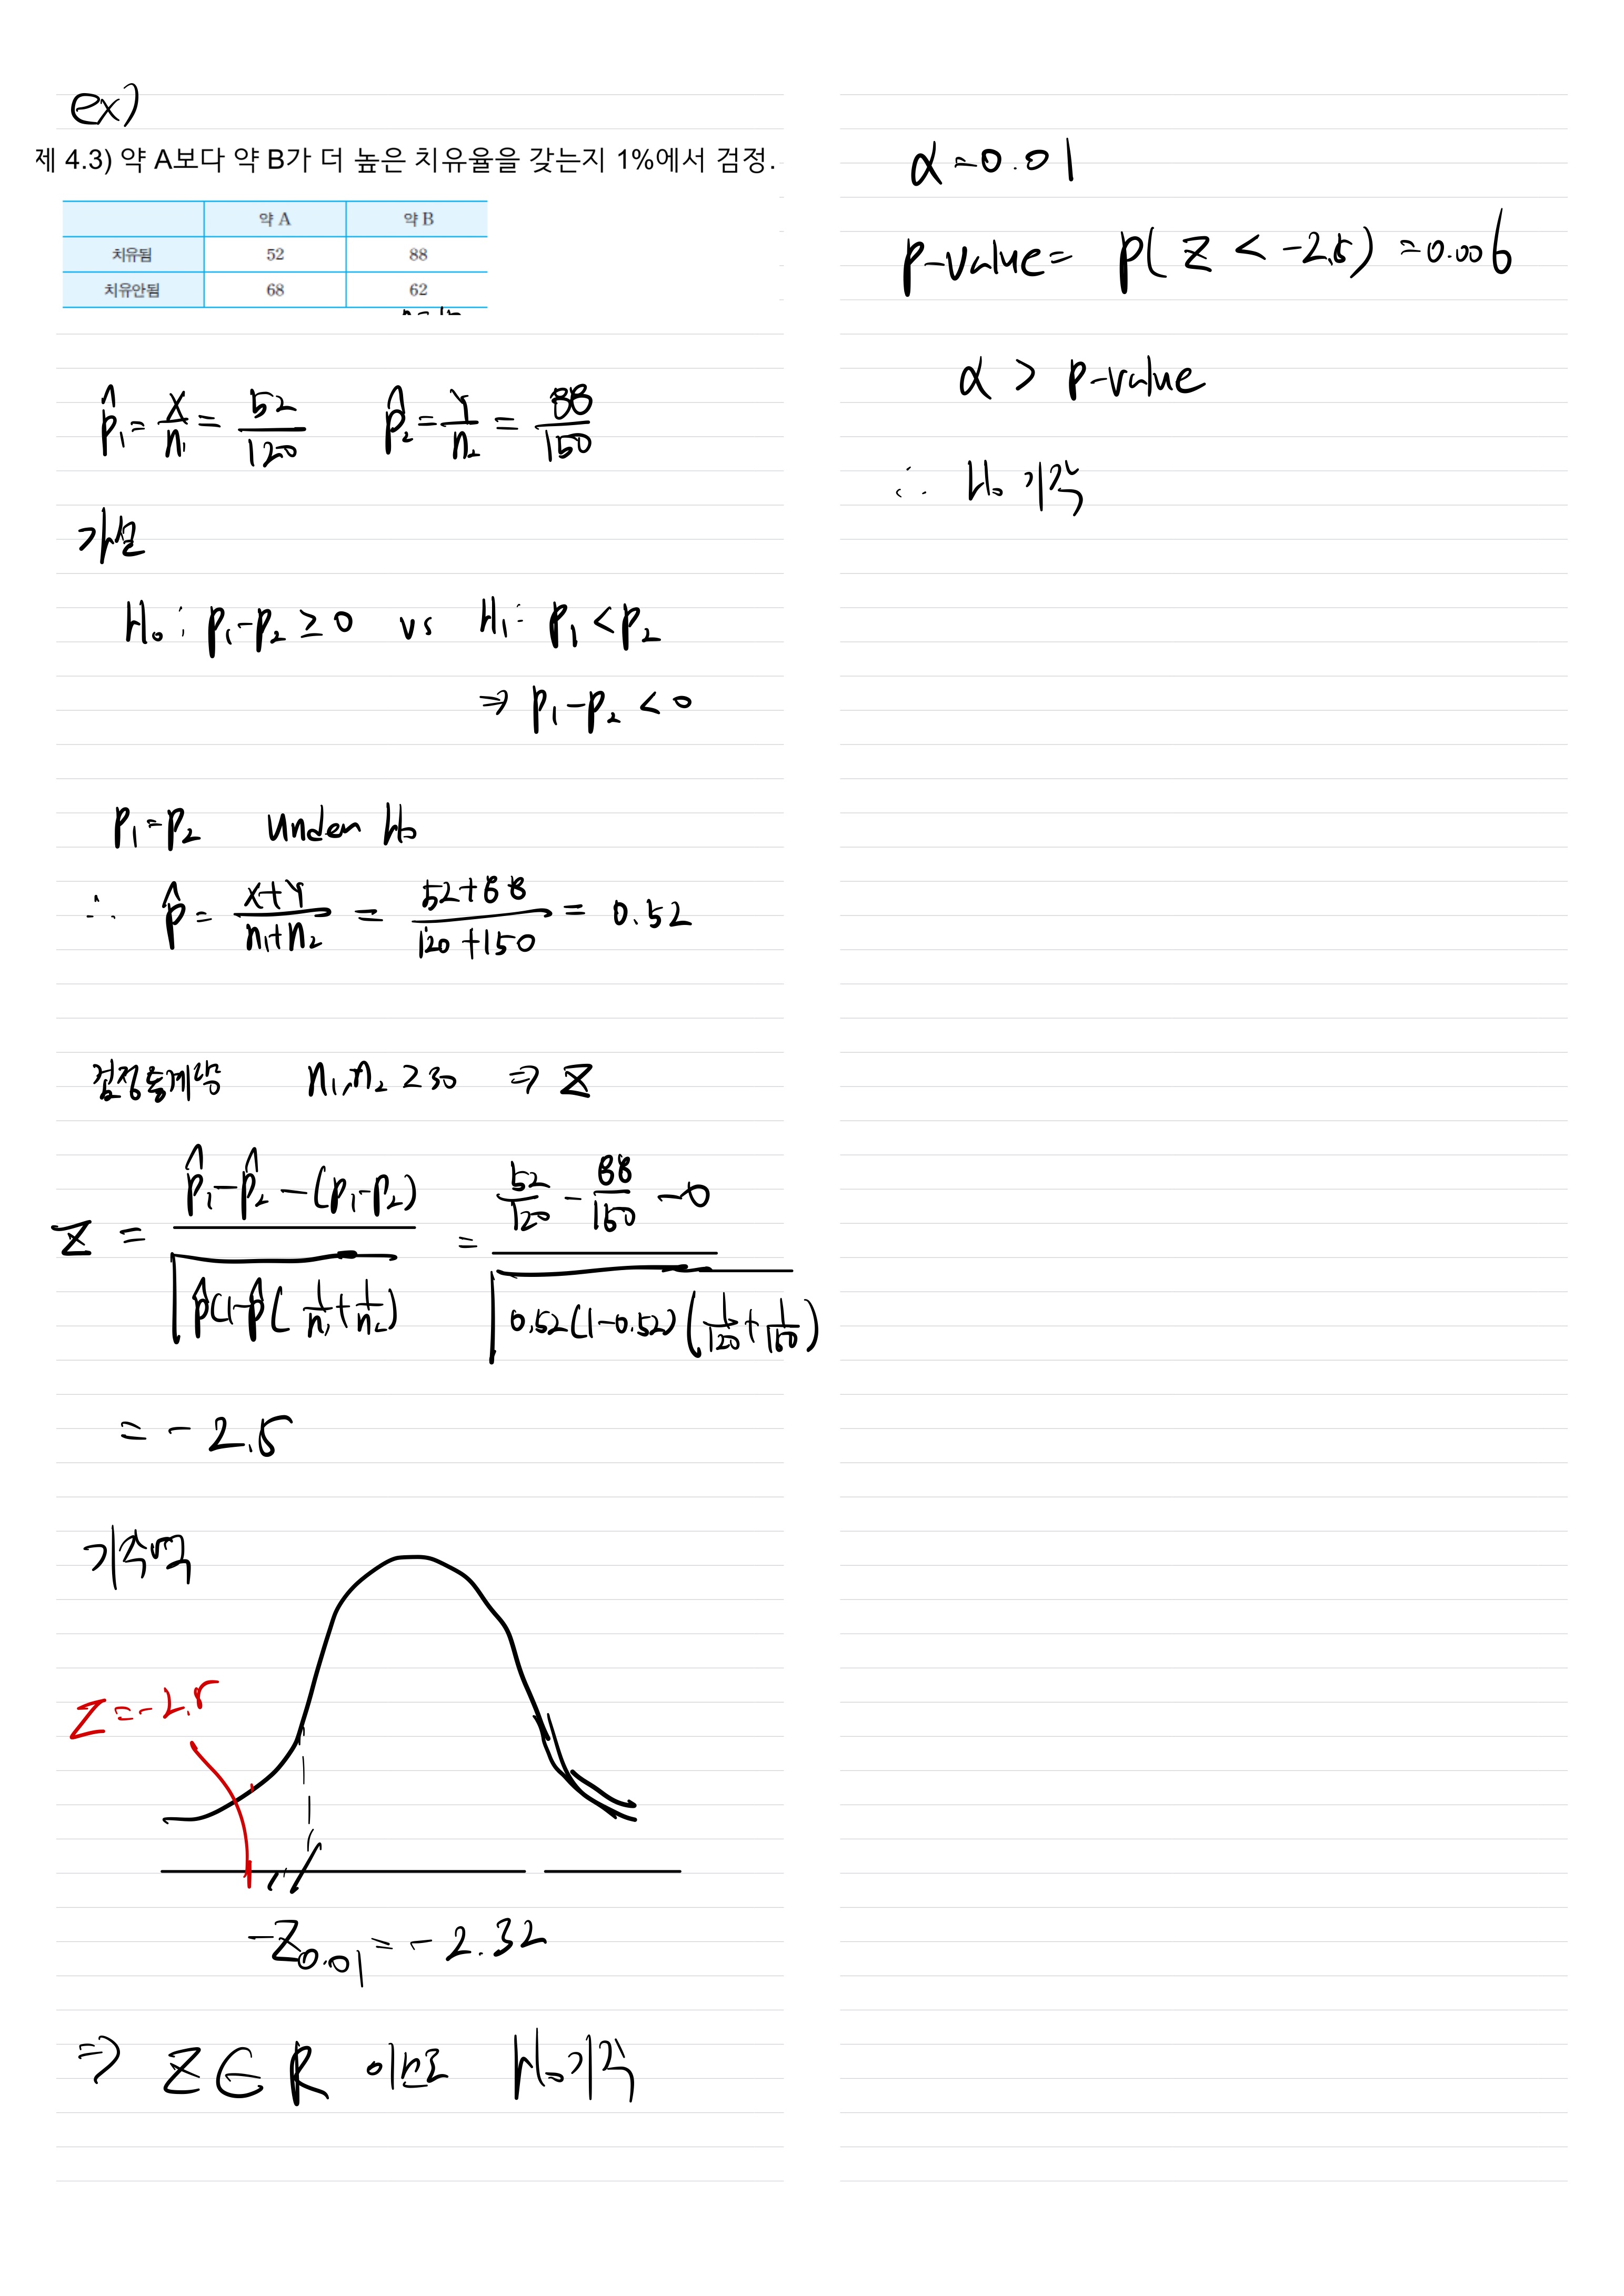 ex)
제 4.3) 약 A보다 약 B가 더 높은 치유율을 갖는지 1%에서 검정.
약 A 약 B
치유됨 52 88
치유안됨 68 62
p̂₁ = X/n₁ = 52/120 p̂₂ = Y/n₂ = 88/150
가설
H₀ : p₁-p₂ ≥ 0 vs H₁ : p₁ < p₂
⇒ p₁-p₂ < 0
p₁=p₂ under H₀
∴ p̂ = (X+Y)/(n₁+n₂) = (52+88)/(120+150) = 0.52
검정통계량 n₁, n₂ ≥ 30 ⇒ Z
Z = (p̂₁-p̂₂-(p₁-p₂))/√(p̂(1-p̂(1/n₁+1/n₂)) = (52/120 - 88/150 - 0)/√(0.52(1-0.52)(1/120+1/150))
= -2.5
기각역
Z=-2.5
-Z0.01 = -2.32
⇒ Z∈R 이므로 H₀기각
α=0.01
p-value = P( Z < -2.5) = 0.006
α > p-value
∴ H₀ 기각